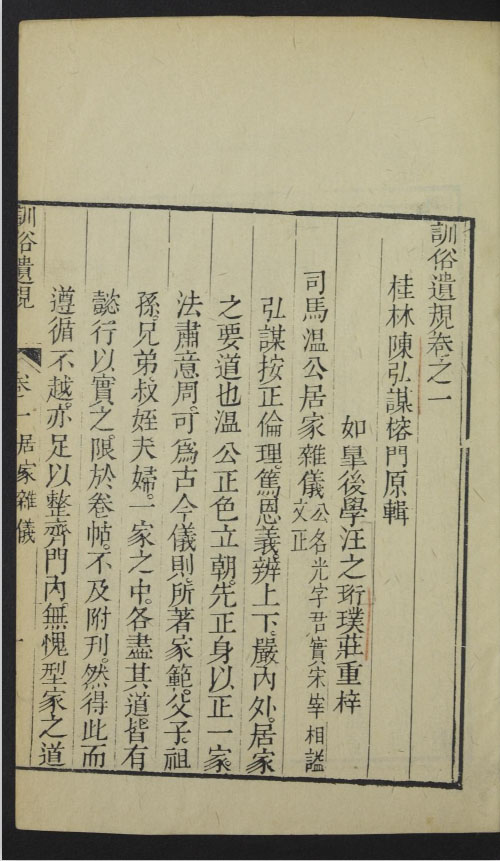 訓俗遺規卷之一
桂林陳弘謀榕門原輯
如臯後學汪之珩璞莊重梓
司馬溫公居家雜儀公名光字君實宋宰相諡文正
弘謀按正倫理。篤恩義。辨上下。嚴內外。居家
之要道也溫公正色立朝。先正身以正一家
法肅意周。可爲古今儀則。所著家範。父子。祖
孫。兄弟叔姪夫婦。一家之中。各盡其道。皆有
懿行以實之。限於卷帖。不及附刊。然得此而
遵循不越。亦足以整齊門內。無愧型家之道
訓俗遺規 卷一 居家雜儀 一